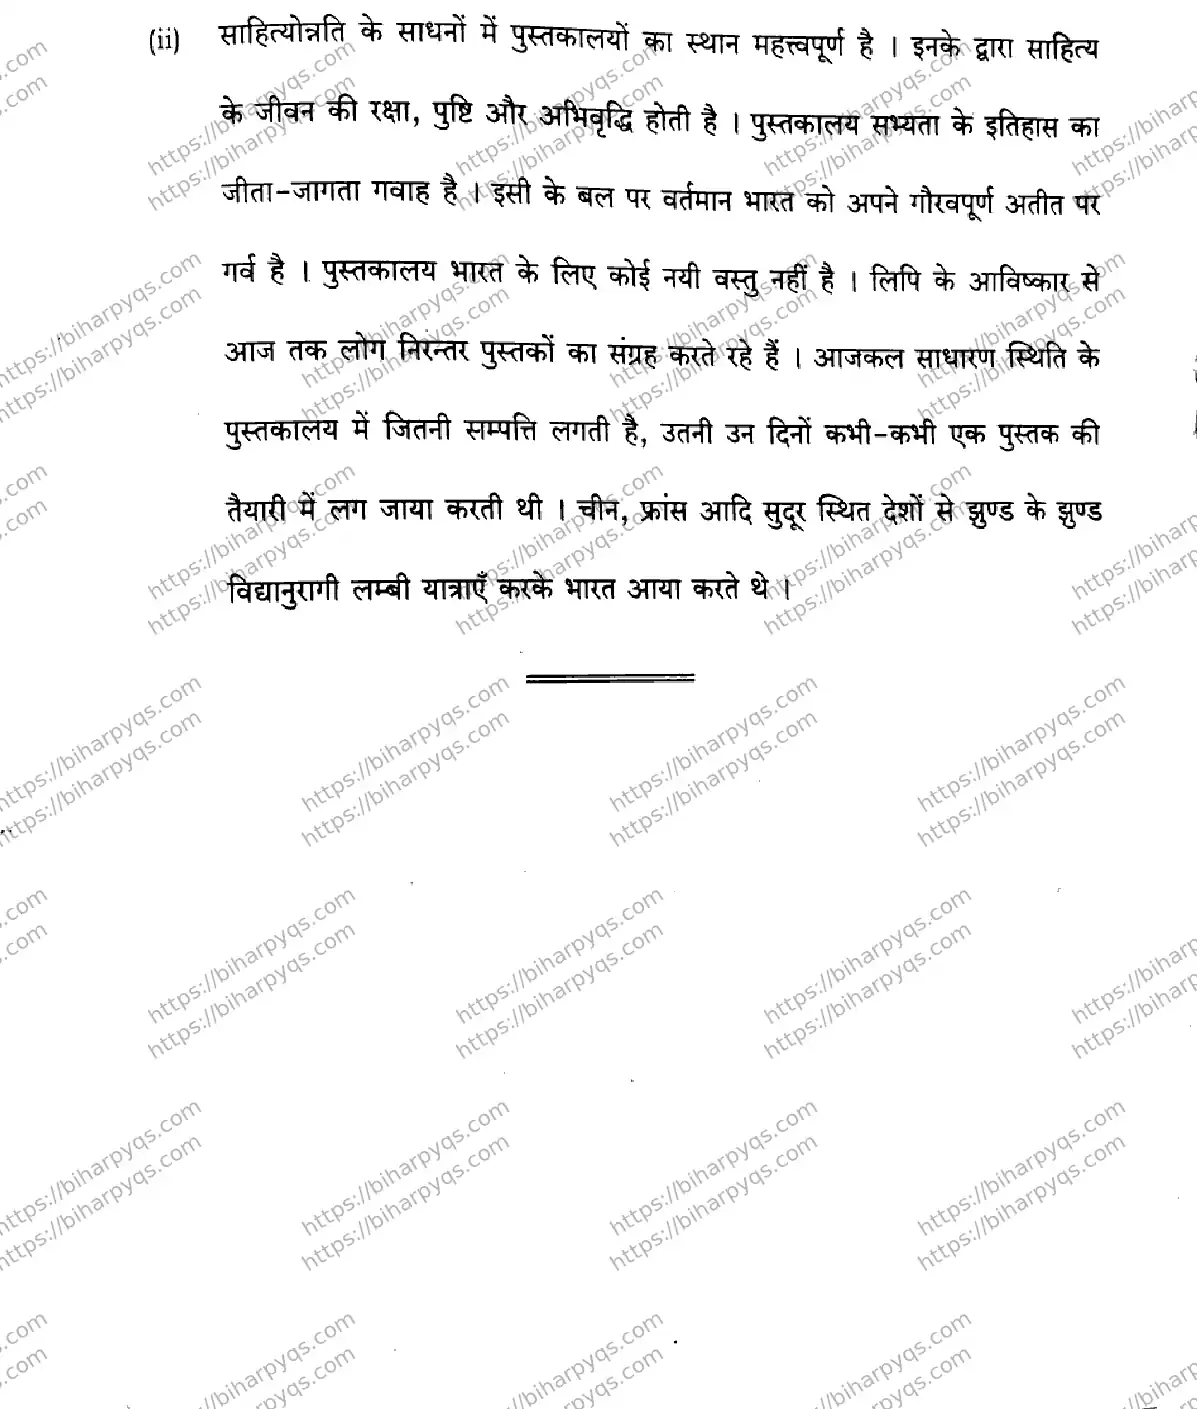 (ii) साहित्योन्नति के साधनों में पुस्तकालयों का स्थान महत्त्वपूर्ण है । इनके द्वारा साहित्य
के जीवन की रक्षा, पुष्टि और अभिवृद्धि होती है । पुस्तकालय सभ्यता के इतिहास का
जीता-जागता गवाह है । इसी के बल पर वर्तमान भारत को अपने गौरवपूर्ण अतीत पर
गर्व है । पुस्तकालय भारत के लिए कोई नयी वस्तु नहीं है । लिपि के आविष्कार से
आज तक लोग निरन्तर पुस्तकों का संग्रह करते रहे हैं । आजकल साधारण स्थिति के
पुस्तकालय में जितनी सम्पत्ति लगती है, उतनी उन दिनों कभी-कभी एक पुस्तक की
तैयारी में लग जाया करती थी । चीन, फ्रांस आदि सुदूर स्थित देशों से झुण्ड के झुण्ड
विद्यानुरागी लम्बी यात्राएँ करके भारत आया करते थे ।
https://biharpyqs.com